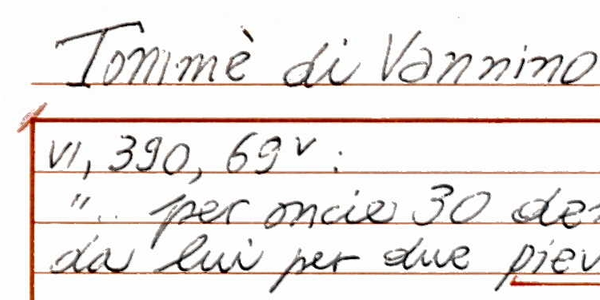 Tommè di Vannino
VI, 390, 69v:
".. per oncie 30 den
da lui per due piev